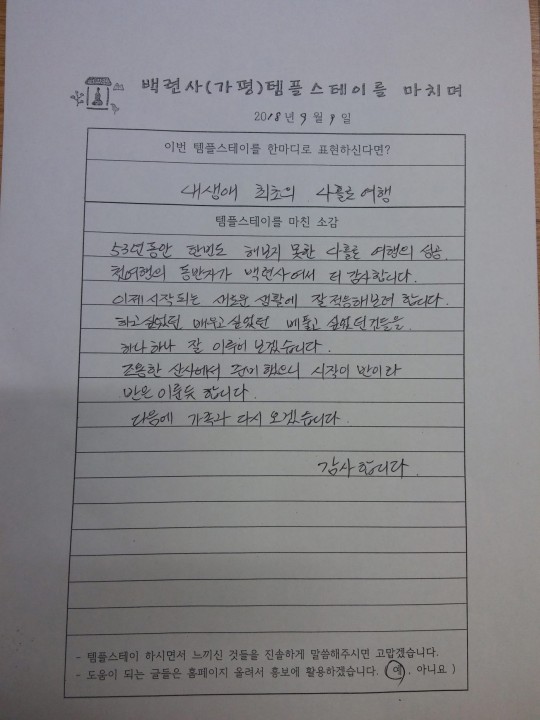 백련사(가평)템플스테이를 마치며
2018년 9월 9일
이번 템플스테이를 한마디로 표현하신다면?
내생애 최초의 나홀로여행
템플스테이를 마친 소감
53년동안 한번도 해보지 못한 나홀로 여행의 성공.
첫여행의 동반자가 백련사여서 더 감사합니다.
이제 시작되는 새로운 생활에 잘적응해보려 합니다.
하고싶었던 배우고 싶었던 베풀고 싶었던것들을
하나하나 잘 이루어 보겠습니다.
조용한 산사에서 준비했으니 시작이 반이라
반은 이룬듯 합니다.
다음에 가족과 다시 오겠습니다.
감사합니다.
- 템플스테이 하시면서 느끼신 것들을 진솔하게 말씀해주시면 고맙겠습니다.
- 도움이 되는 글들은 홈페이지 올려서 홍보에 활용하겠습니다. (예, 아니요)